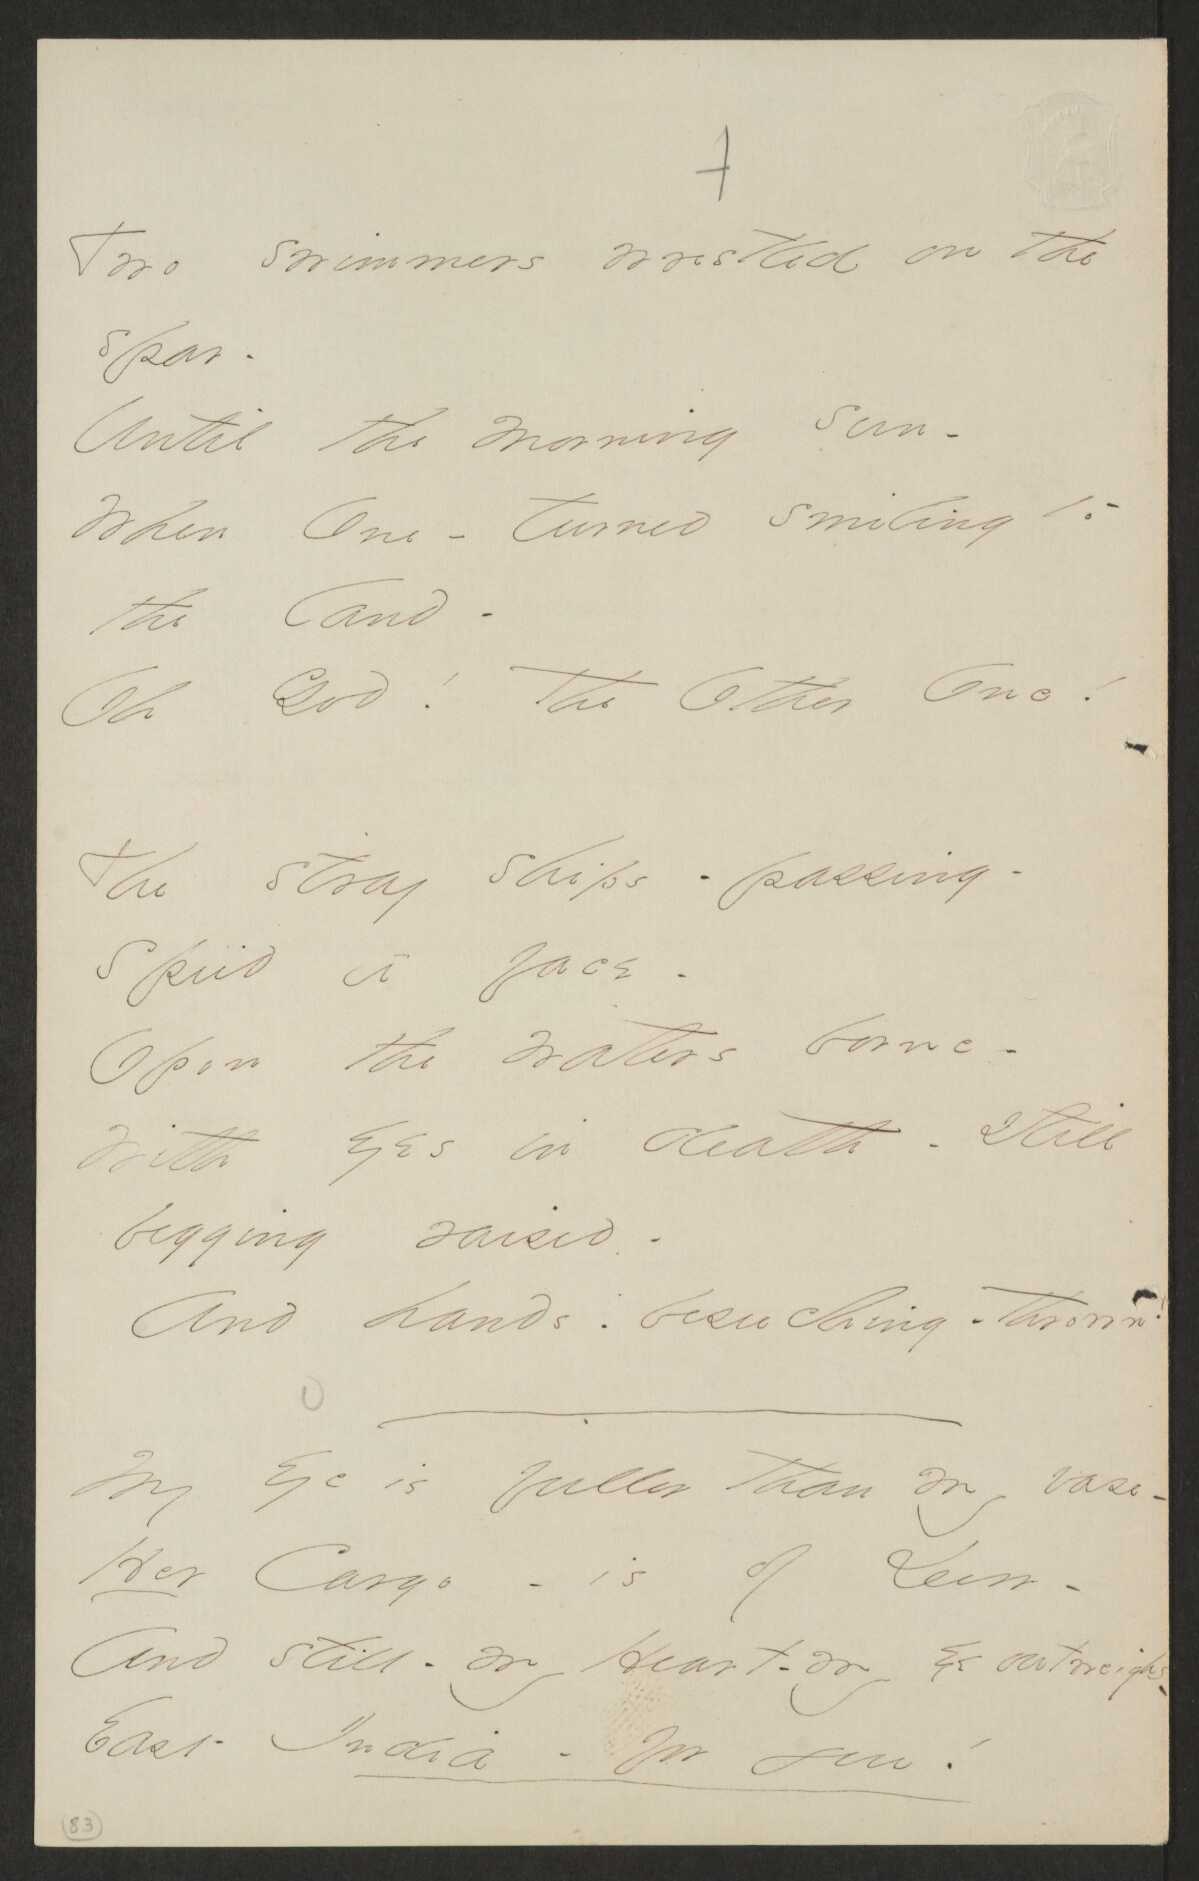 Two swimmers wrestled on the
spar -
Until the morning sun -
When One - turned smiling to
the land -
Oh God! the Other One!
The stray ships - passing -
Spied a face -
Upon the waters borne -
With eyes in death - still
begging raised -
And hands - beseeching - thrown!
My Eye is fuller than my vase -
Her Cargo - is of Dew -
And still - my Heart - my Eye outweighs -
East India - for you!
83